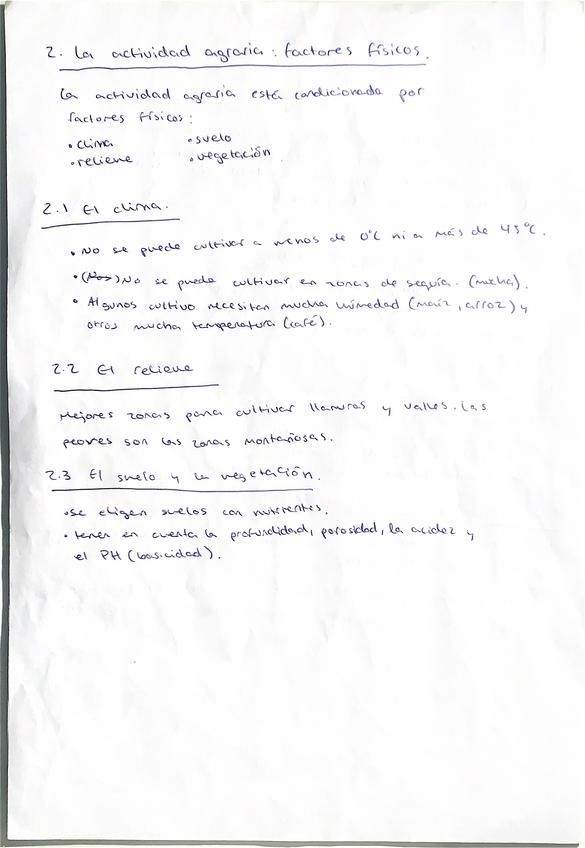 2. La actividad agraria: factores físicos.
La actividad agraria está condicionada por
factores físicos:
• clima • suelo
• relieve • vegetación
2.1 El clima.
• No se puede cultivar a menos de 0°C ni a más de 45°C.
• No se puede cultivar en zonas de sequía. (mucha).
• Algunos cultivo necesitan mucha humedad (maíz, arroz) y
otros mucha temperatura (café).
2.2 El relieve
Mejores zonas para cultivar llanuras y valles. Las
peores son las zonas montañosas.
2.3 El suelo y la vegetación.
• se eligen suelos con nutrientes.
• tener en cuenta la profundidad, porosidad, la acidez y
el PH (basicidad).